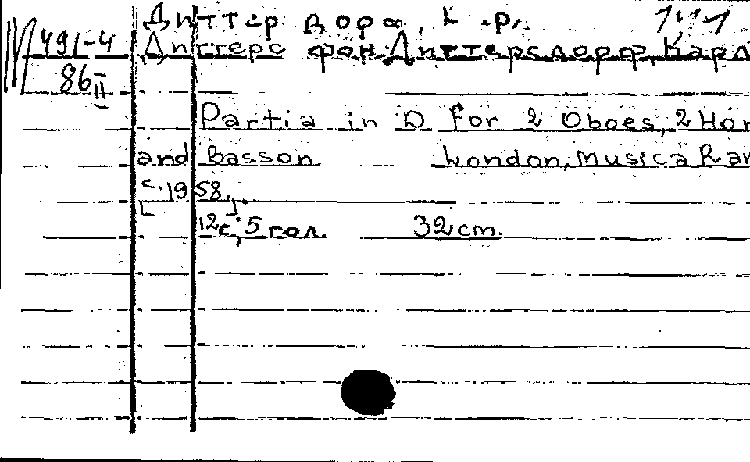 Диттер дорф, К.
М 491-4 Диттерс фон Диттерсдорф, Карл
86 II
Partia in D for 2 Oboes, 2 Hor
and Basson London, Musica Rar
c. 1958.
12с; 5 гол. 32 cm.